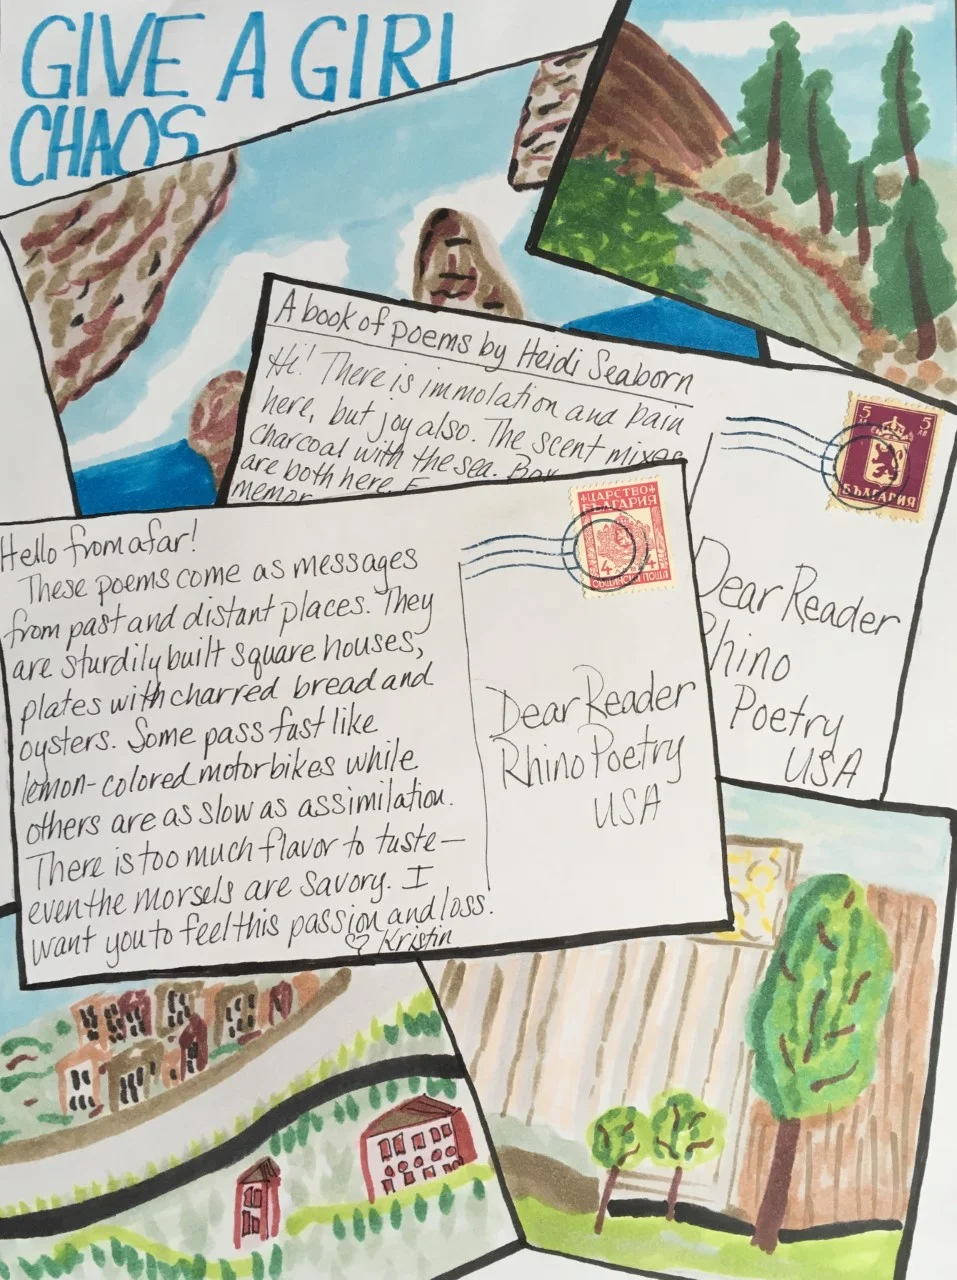 GIVE A GIRL
CHAOS
A book of poems by Heidi Seaborn
Hi! There is immolation and pain
here, but joy also. The scent mixes
charcoal with the sea.
are both here.
5 5
БЪЛГАРИЯ
Dear Reader
Rhino
Poetry
USA
Hello from afar!
These poems come as messages
from past and distant places. They
are sturdily built square houses,
plates with charred bread and
oysters. Some pass fast like
lemon-colored motorbikes while
others are as slow as assimilation.
There is too much flavor to taste—
even the morsels are savory. I
want you to feel this passion and loss.
♡ Kristin
ЦАРСТВО
БЪЛГАРИЯ
4 4
Dear Reader
Rhino Poetry
USA